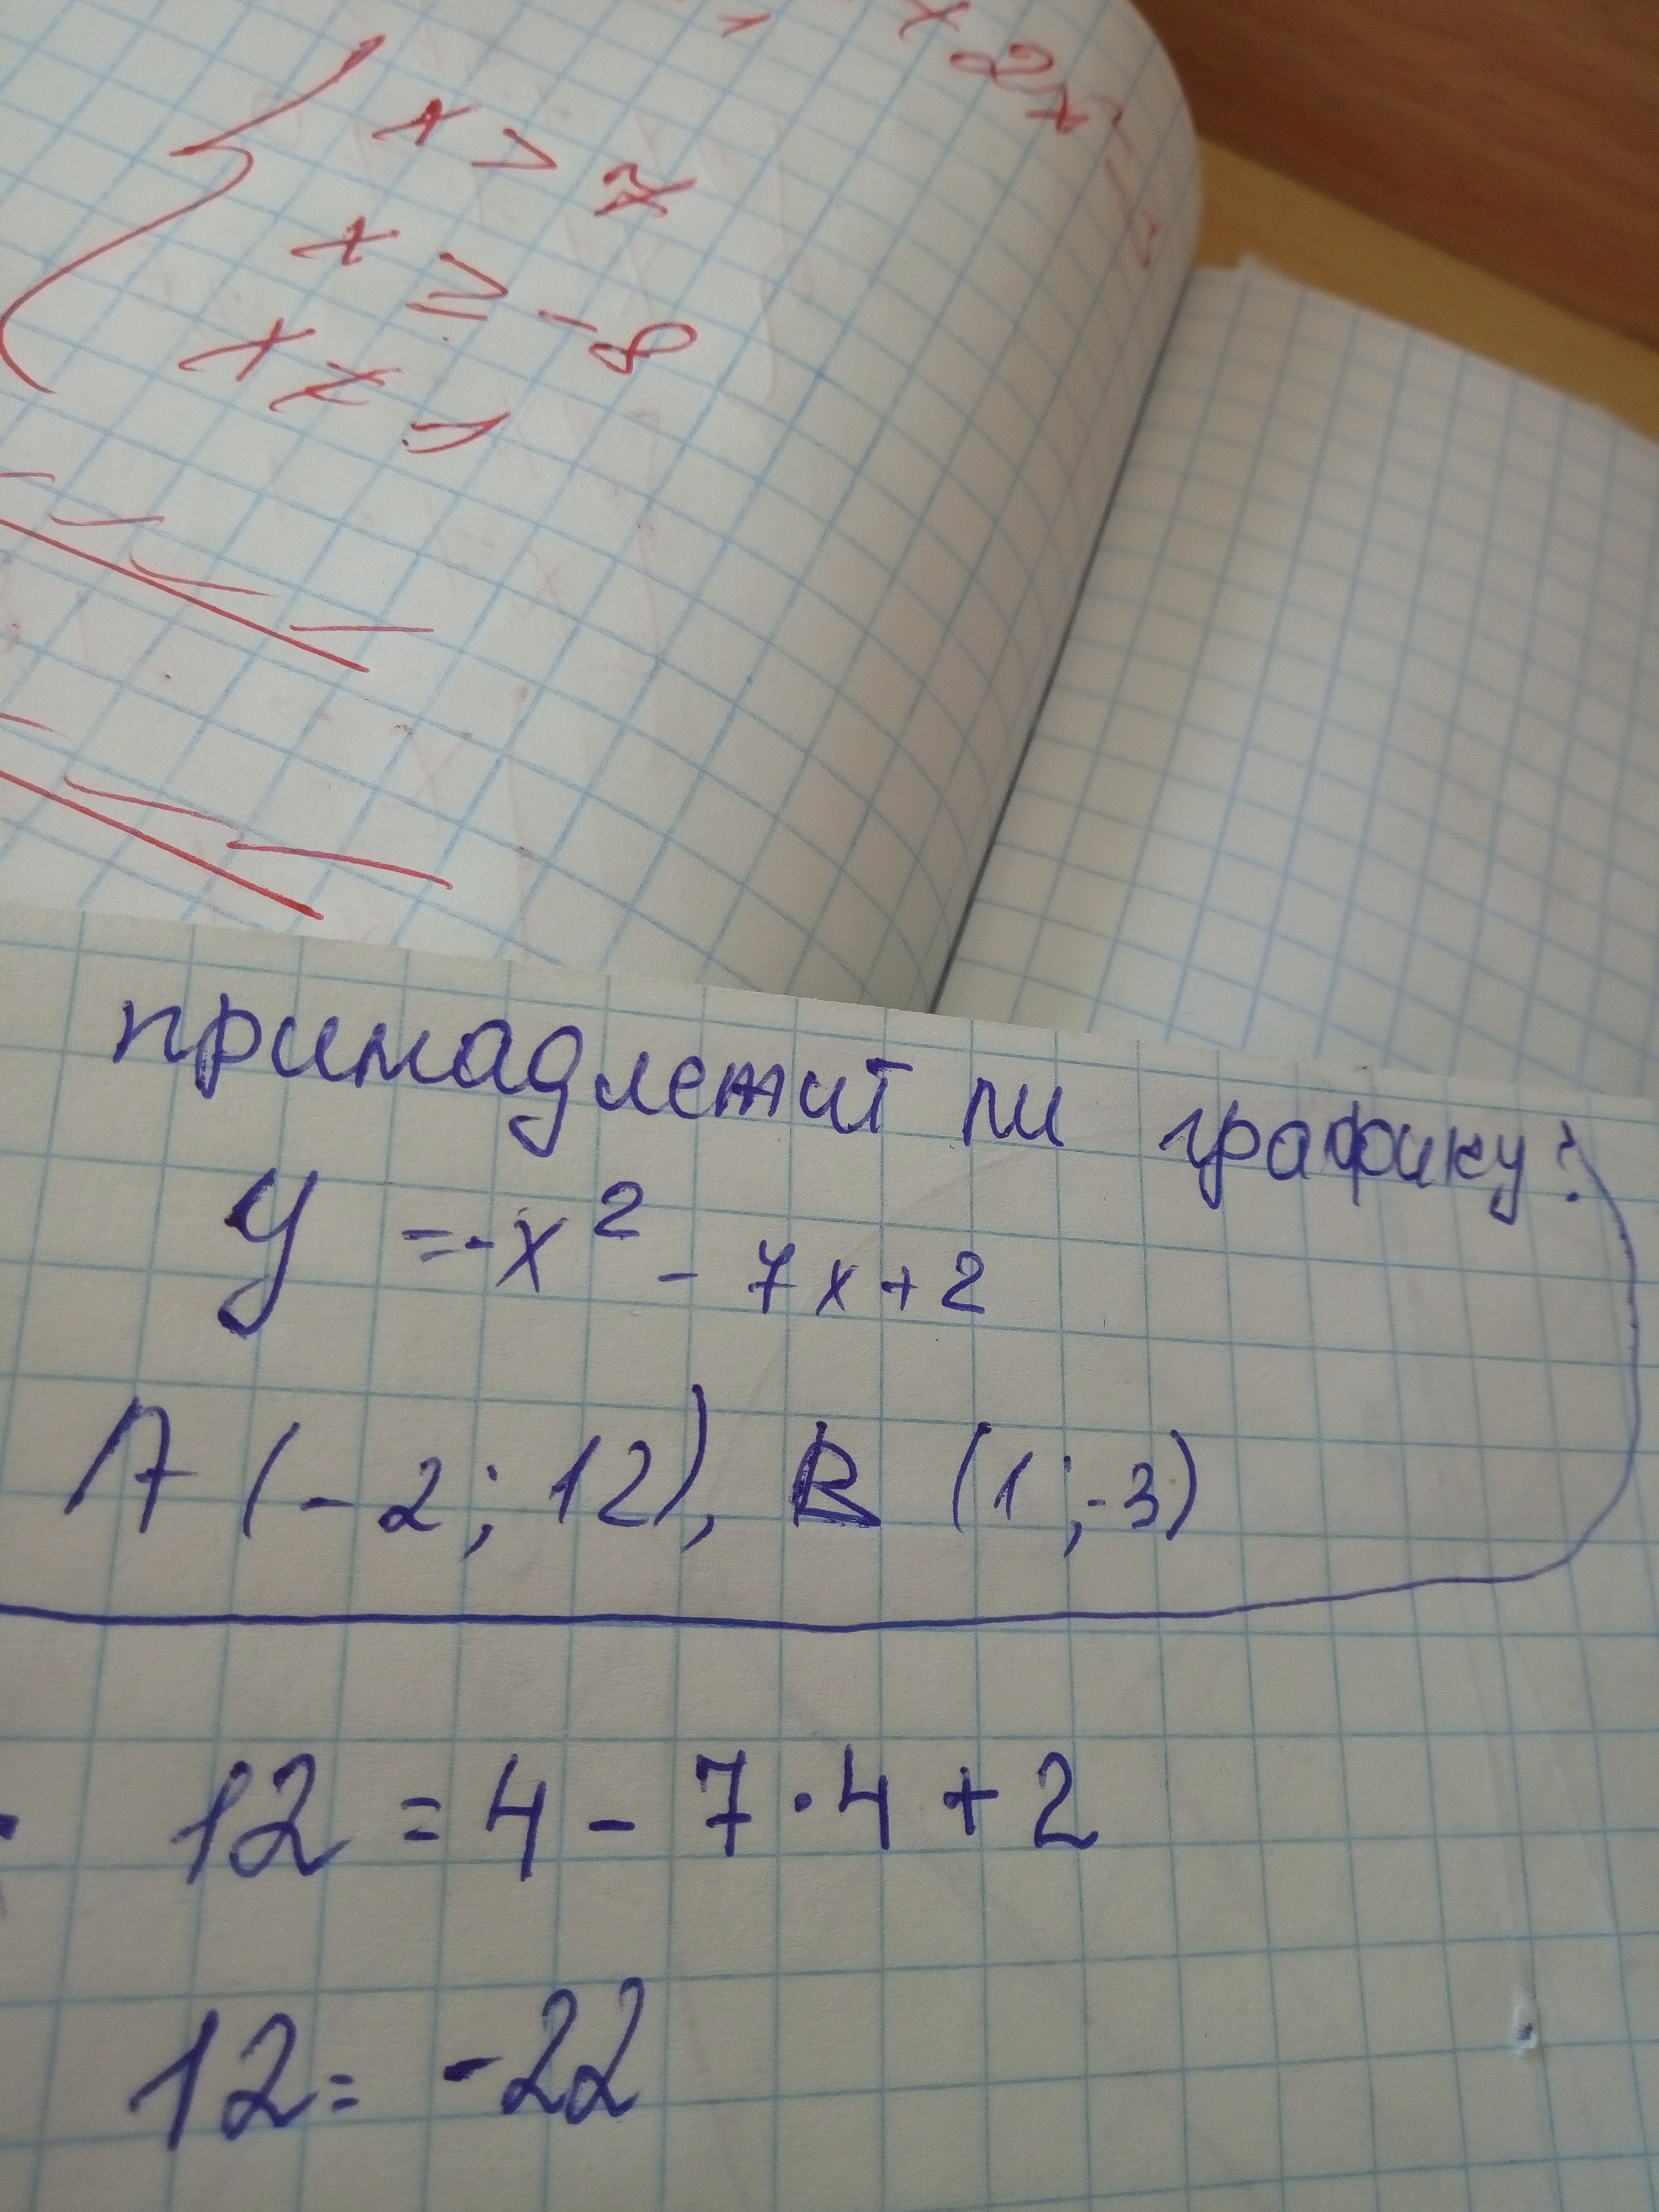 x > 7
x ≥ -8
x ≠ 1
принадлежит ли графику?
y = -x² - 7x + 2
A (-2; 12), B (1; -3)
12 = 4 - 7 · 4 + 2
12 = -22